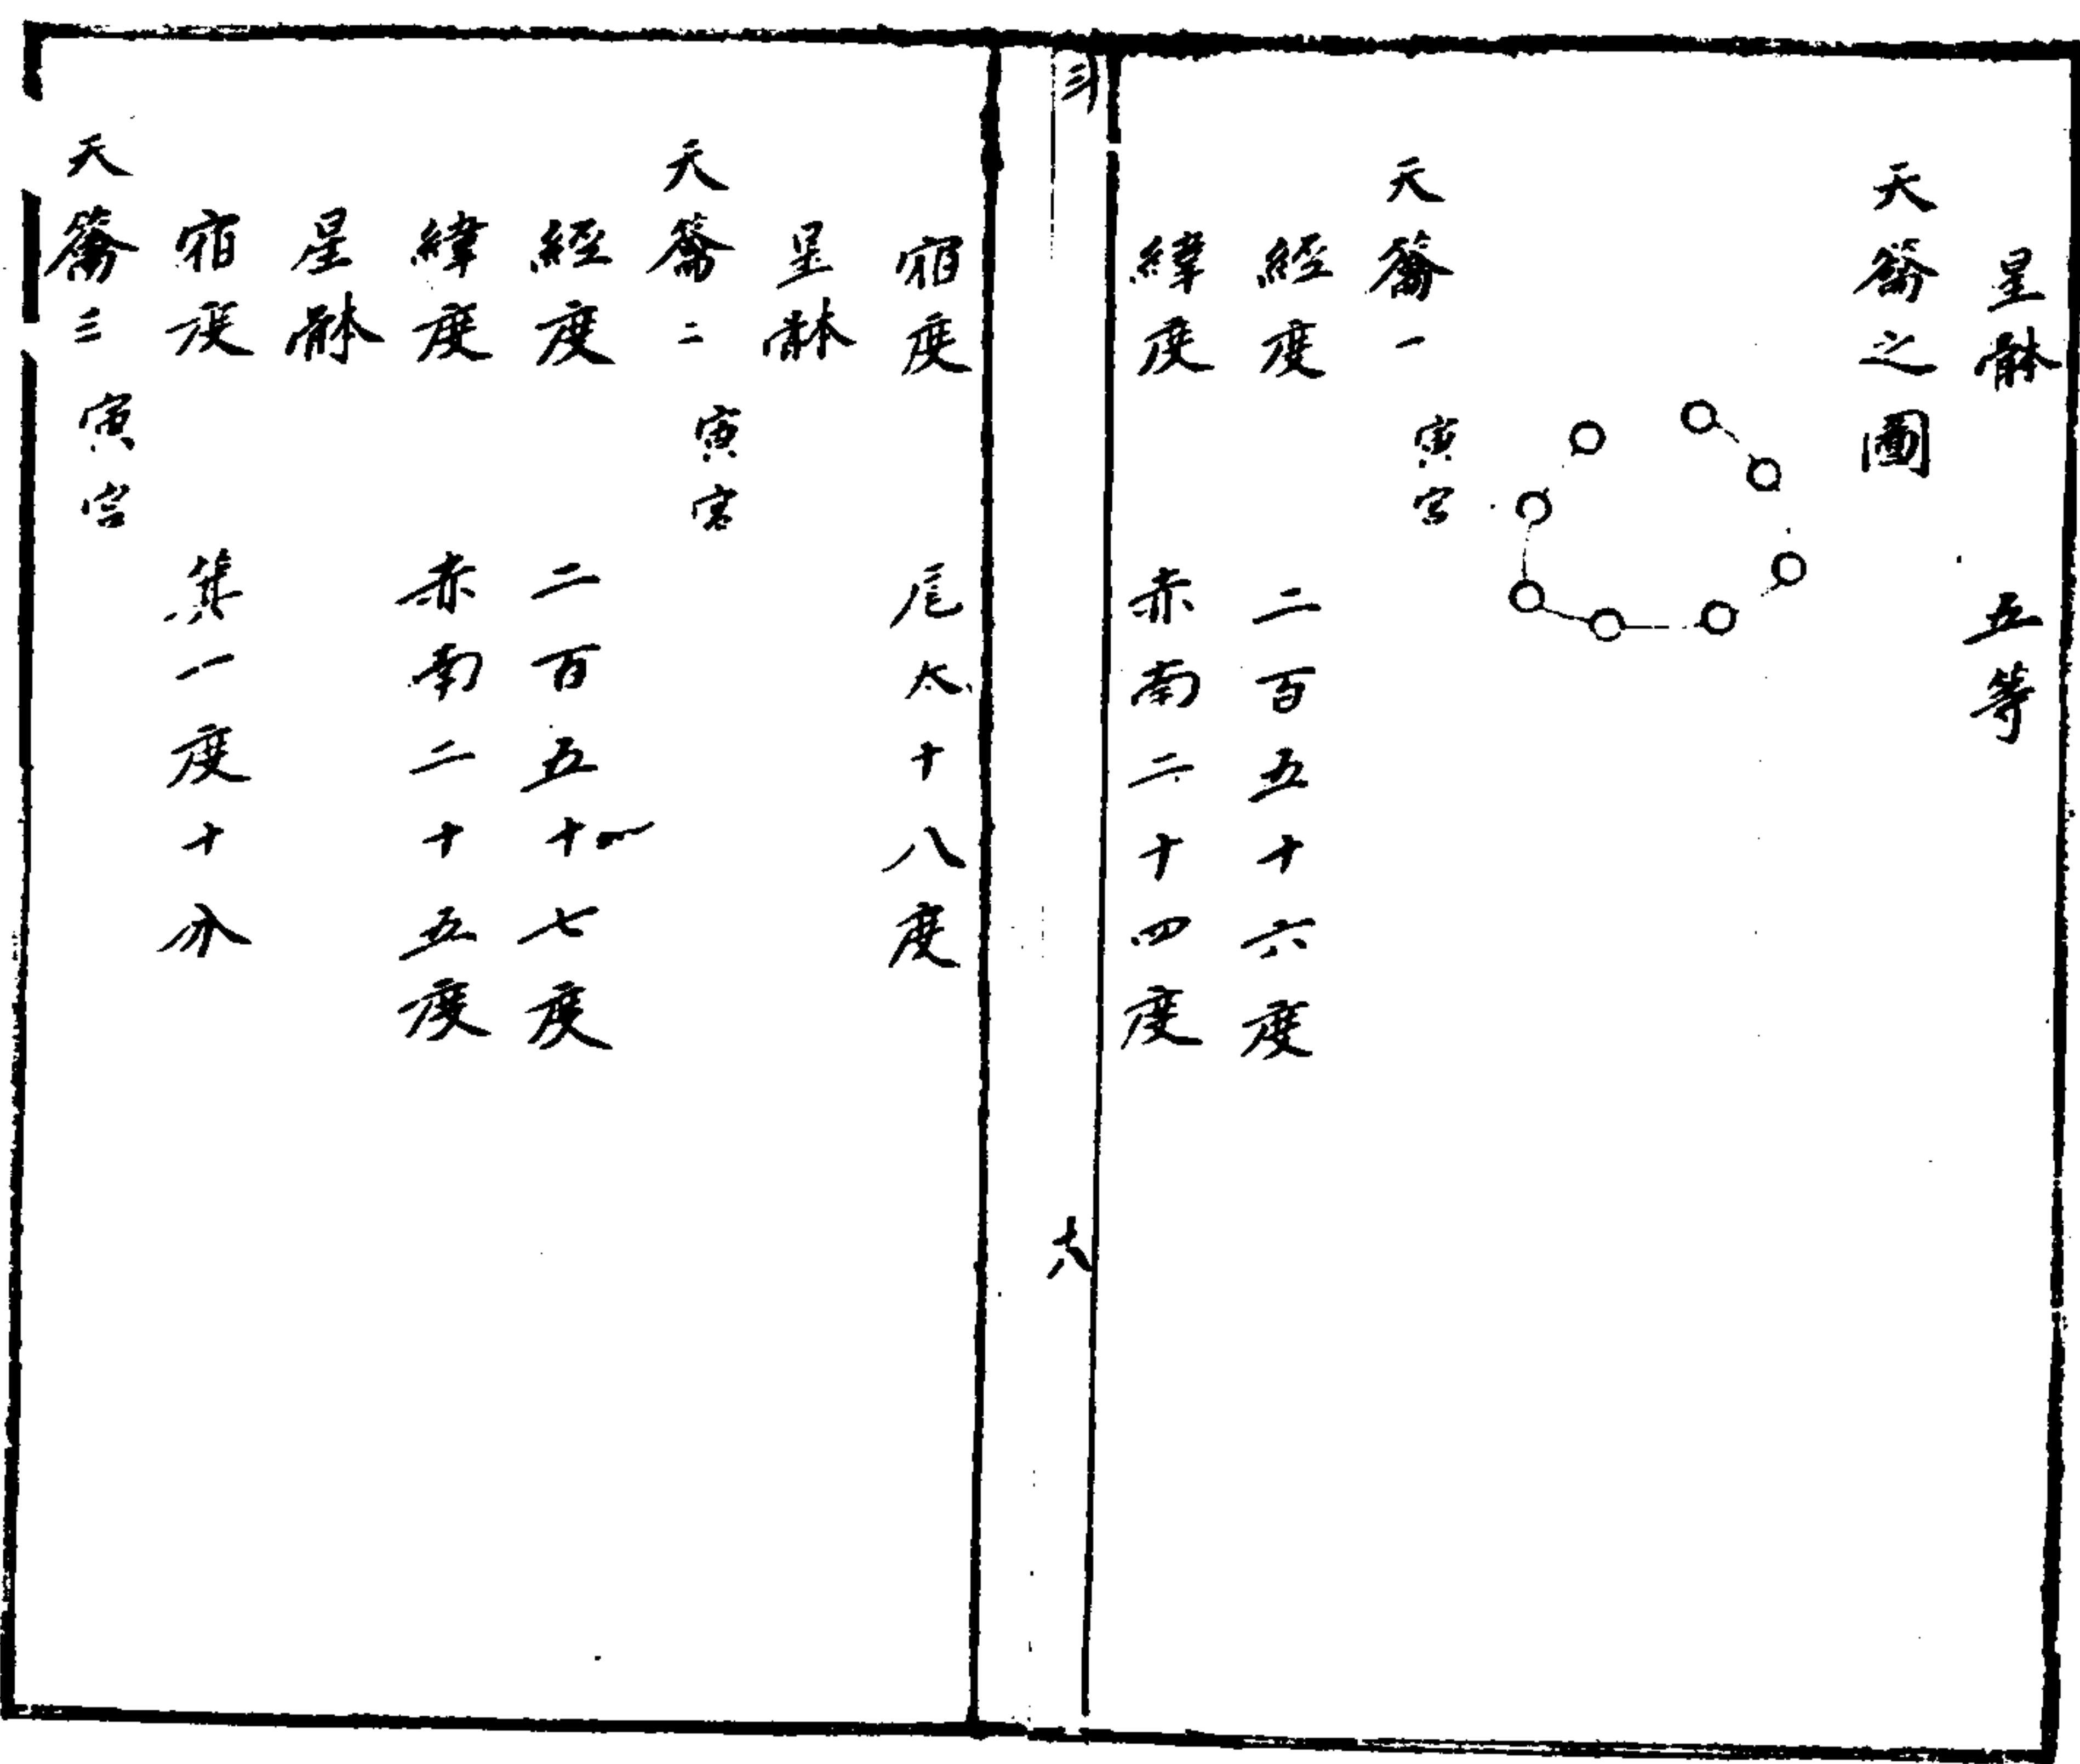 星躰 五等
天籥之圖
天籥一 寅宮
經度 二百五十六度
緯度 赤南二十四度
斗
十八
宿度 尾太十八度
星躰
天籥二 寅宮
經度 二百五十七度
緯度 赤南二十五度
星躰
宿度 箕一度十分
天籥三 寅宮